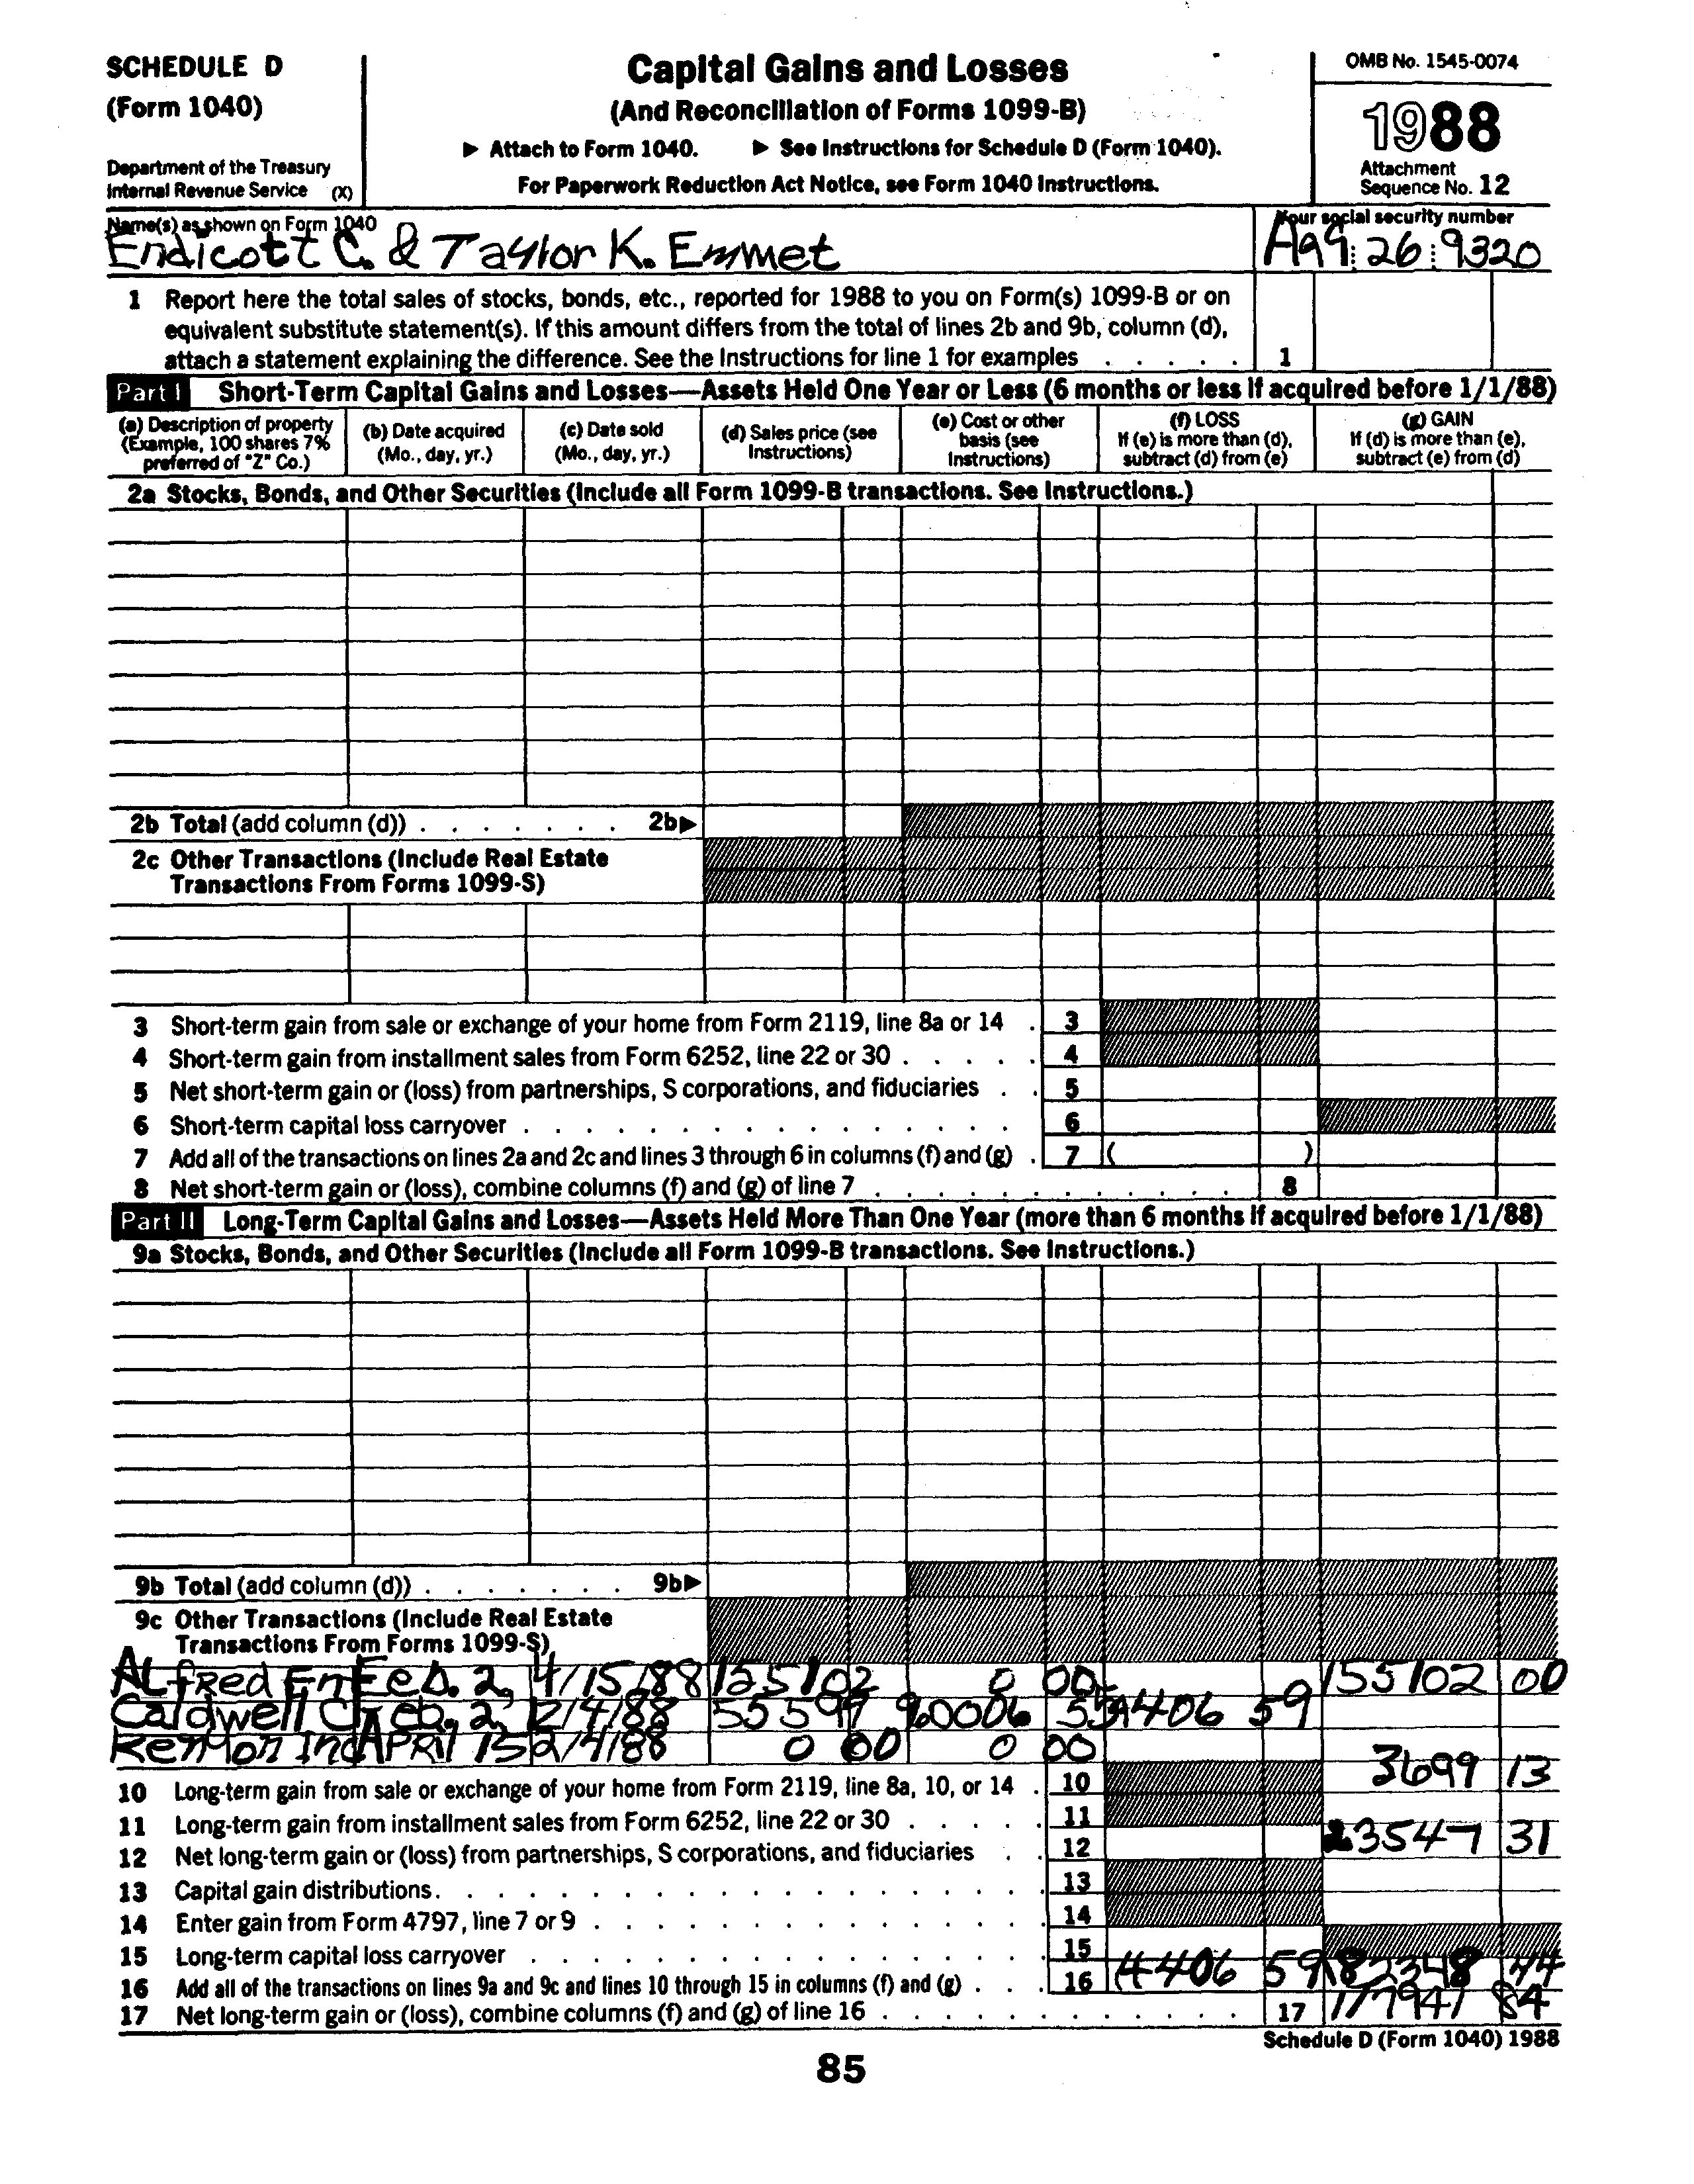 SCHEDULE D
(Form 1040)
Department of the Treasury
Internal Revenue Service (X)
Capital Gains and Losses
(And Reconciliation of Forms 1099-B)
▶ Attach to Form 1040. ▶ See Instructions for Schedule D (Form 1040).
For Paperwork Reduction Act Notice, see Form 1040 Instructions.
OMB No. 1545-0074
1988
Attachment
Sequence No. 12
Name(s) as shown on Form 1040
Endicott C. & Taylor K. Emmet
Your social security number
A99:26:9320
1 Report here the total sales of stocks, bonds, etc., reported for 1988 to you on Form(s) 1099-B or on
equivalent substitute statement(s). If this amount differs from the total of lines 2b and 9b, column (d),
attach a statement explaining the difference. See the Instructions for line 1 for examples . . . . . 1
Part I Short-Term Capital Gains and Losses—Assets Held One Year or Less (6 months or less if acquired before 1/1/88)
(a) Description of property
(Example, 100 shares 7%
preferred of "Z" Co.)
(b) Date acquired
(Mo., day, yr.)
(c) Date sold
(Mo., day, yr.)
(d) Sales price (see
Instructions)
(e) Cost or other
basis (see
Instructions)
(f) LOSS
If (e) is more than (d),
subtract (d) from (e)
(g) GAIN
If (d) is more than (e),
subtract (e) from (d)
2a Stocks, Bonds, and Other Securities (Include all Form 1099-B transactions. See Instructions.)
2b Total (add column (d)) . . . . . . . 2b▶
2c Other Transactions (Include Real Estate
Transactions From Forms 1099-S)
3 Short-term gain from sale or exchange of your home from Form 2119, line 8a or 14 . 3
4 Short-term gain from installment sales from Form 6252, line 22 or 30 . . . . . 4
5 Net short-term gain or (loss) from partnerships, S corporations, and fiduciaries . . 5
6 Short-term capital loss carryover . . . . . . . . . . . . . . . 6
7 Add all of the transactions on lines 2a and 2c and lines 3 through 6 in columns (f) and (g) . 7 ( )
8 Net short-term gain or (loss), combine columns (f) and (g) of line 7 . . . . . . . . . . . . 8
Part II Long-Term Capital Gains and Losses—Assets Held More Than One Year (more than 6 months if acquired before 1/1/88)
9a Stocks, Bonds, and Other Securities (Include all Form 1099-B transactions. See Instructions.)
9b Total (add column (d)) . . . . . . . 9b▶
9c Other Transactions (Include Real Estate
Transactions From Forms 1099-S)
ALfred Feb. 2, 4/15/88 155102 0 00 155102 00
Caldwell Feb. 2, 2/4/88 5559 60006 4406 59
APRil 15 2/4/88 0 00 0 00
3699 13
10 Long-term gain from sale or exchange of your home from Form 2119, line 8a, 10, or 14 . 10
11 Long-term gain from installment sales from Form 6252, line 22 or 30 . . . . . 11
12 Net long-term gain or (loss) from partnerships, S corporations, and fiduciaries . . 12 23547 31
13 Capital gain distributions . . . . . . . . . . . . . . . . . . 13
14 Enter gain from Form 4797, line 7 or 9 . . . . . . . . . . . . . 14
15 Long-term capital loss carryover . . . . . . . . . . . . . . . 15
16 Add all of the transactions on lines 9a and 9c and lines 10 through 15 in columns (f) and (g) . . . 16 4406 59 182348 44
17 Net long-term gain or (loss), combine columns (f) and (g) of line 16 . . . . . . . . . . . . 17 177941 84
Schedule D (Form 1040) 1988
85